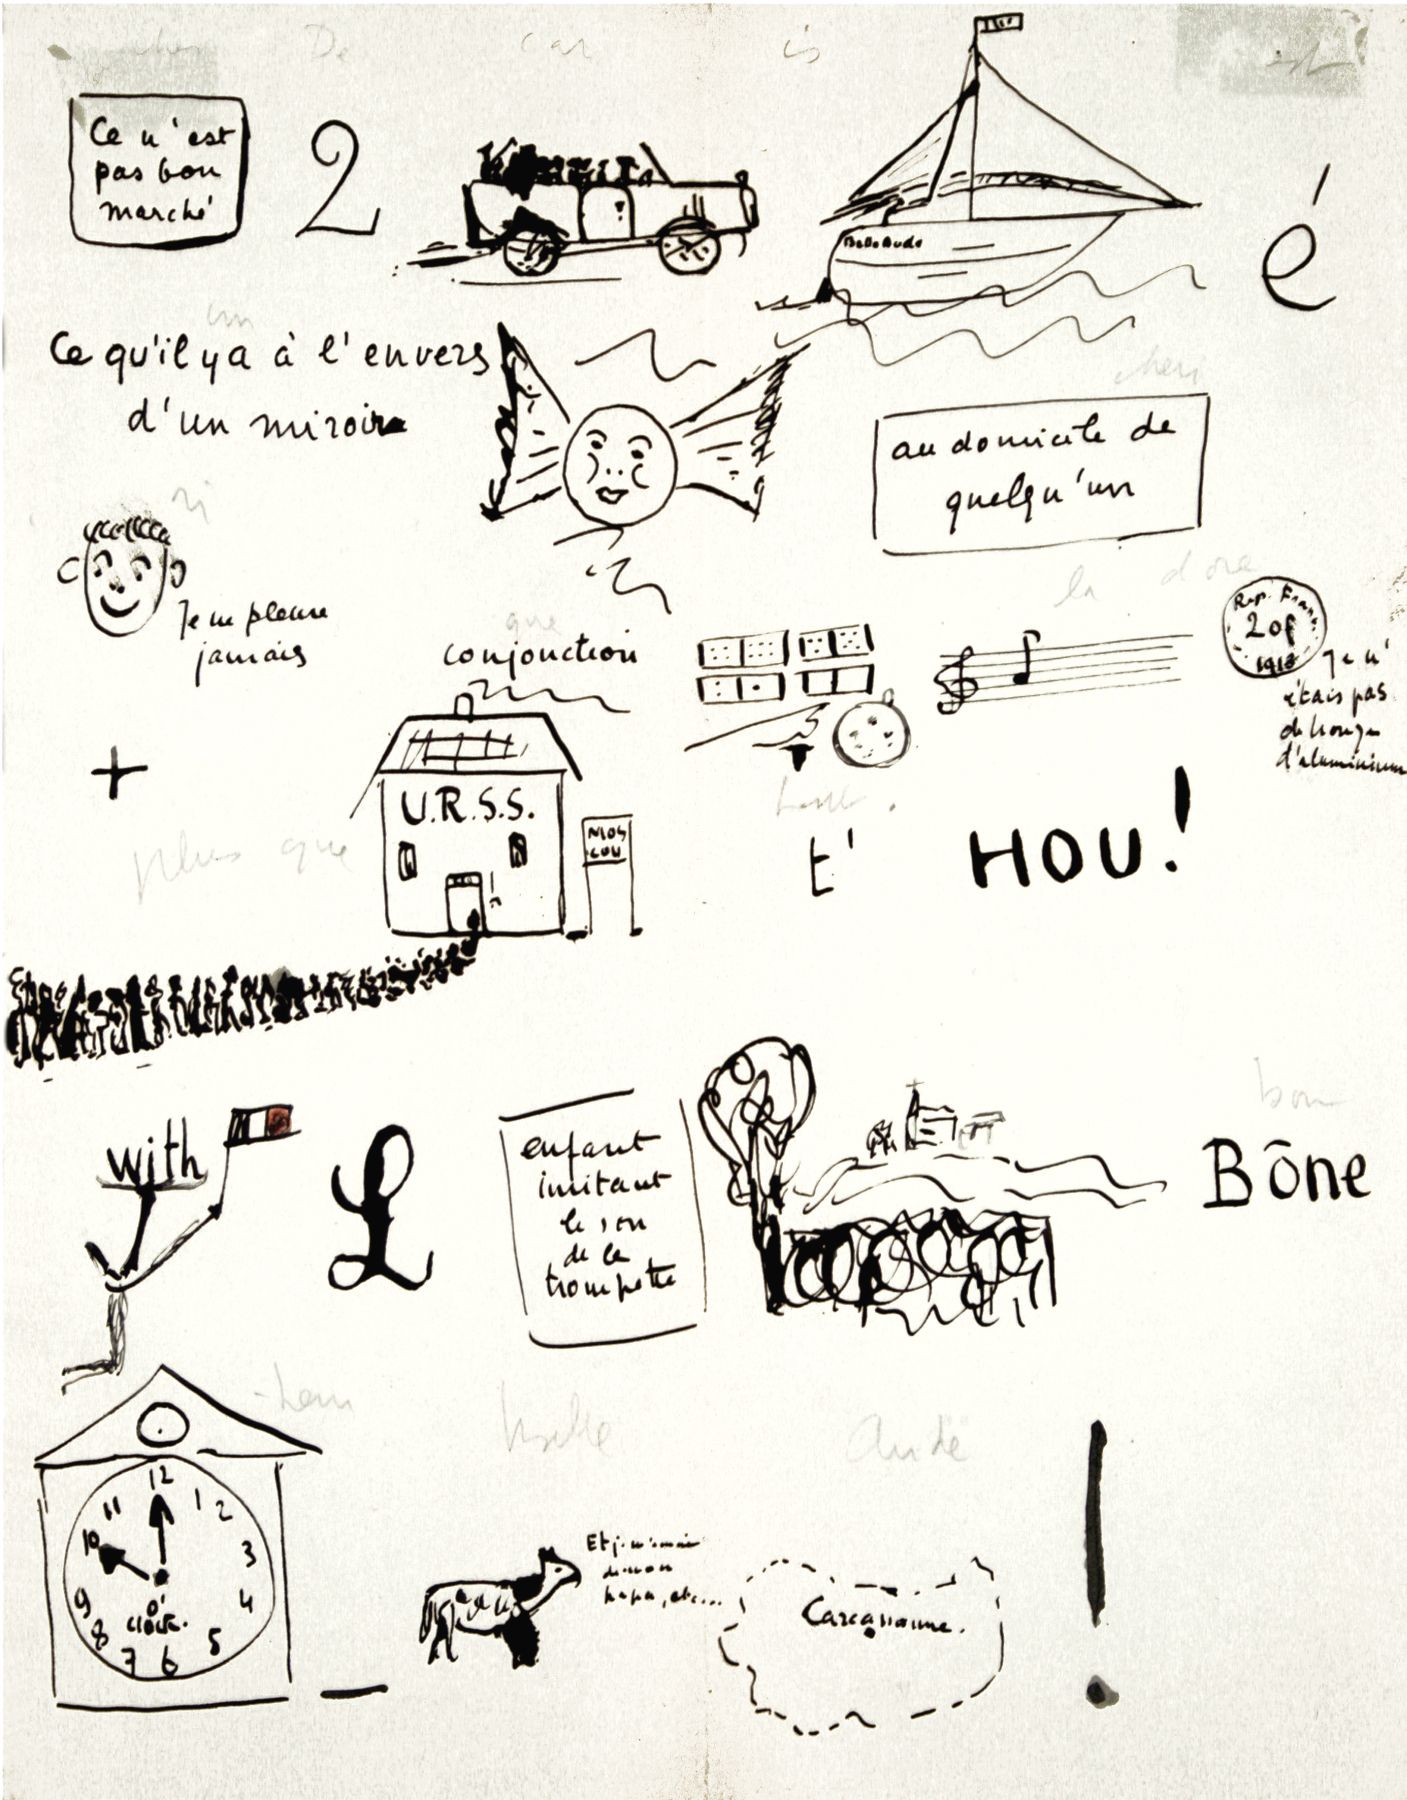 De
car
is
Ce n'est
pas bon
marché
2
é
un
Ce qu'il y a à l'envers
d'un miroir
chéri
au domicile de
quelqu'un
ri
Je ne pleure
jamais
que
conjonction
la
Rep. Franc
20f
1918
Je n'
étais pas
de bronze
d'aluminium
+
plus que
U.R.S.S.
MOS
COU
t'
HOU!
with
L
enfant
imitant
le son
de la
trompette
bon
Bône
12
11
1
2
10
3
9
4
8
5
7
6
O'
CLOCK.
-
Et je m'ennuie
de mon
papa, etc...
Aude
Carcassonne.
!